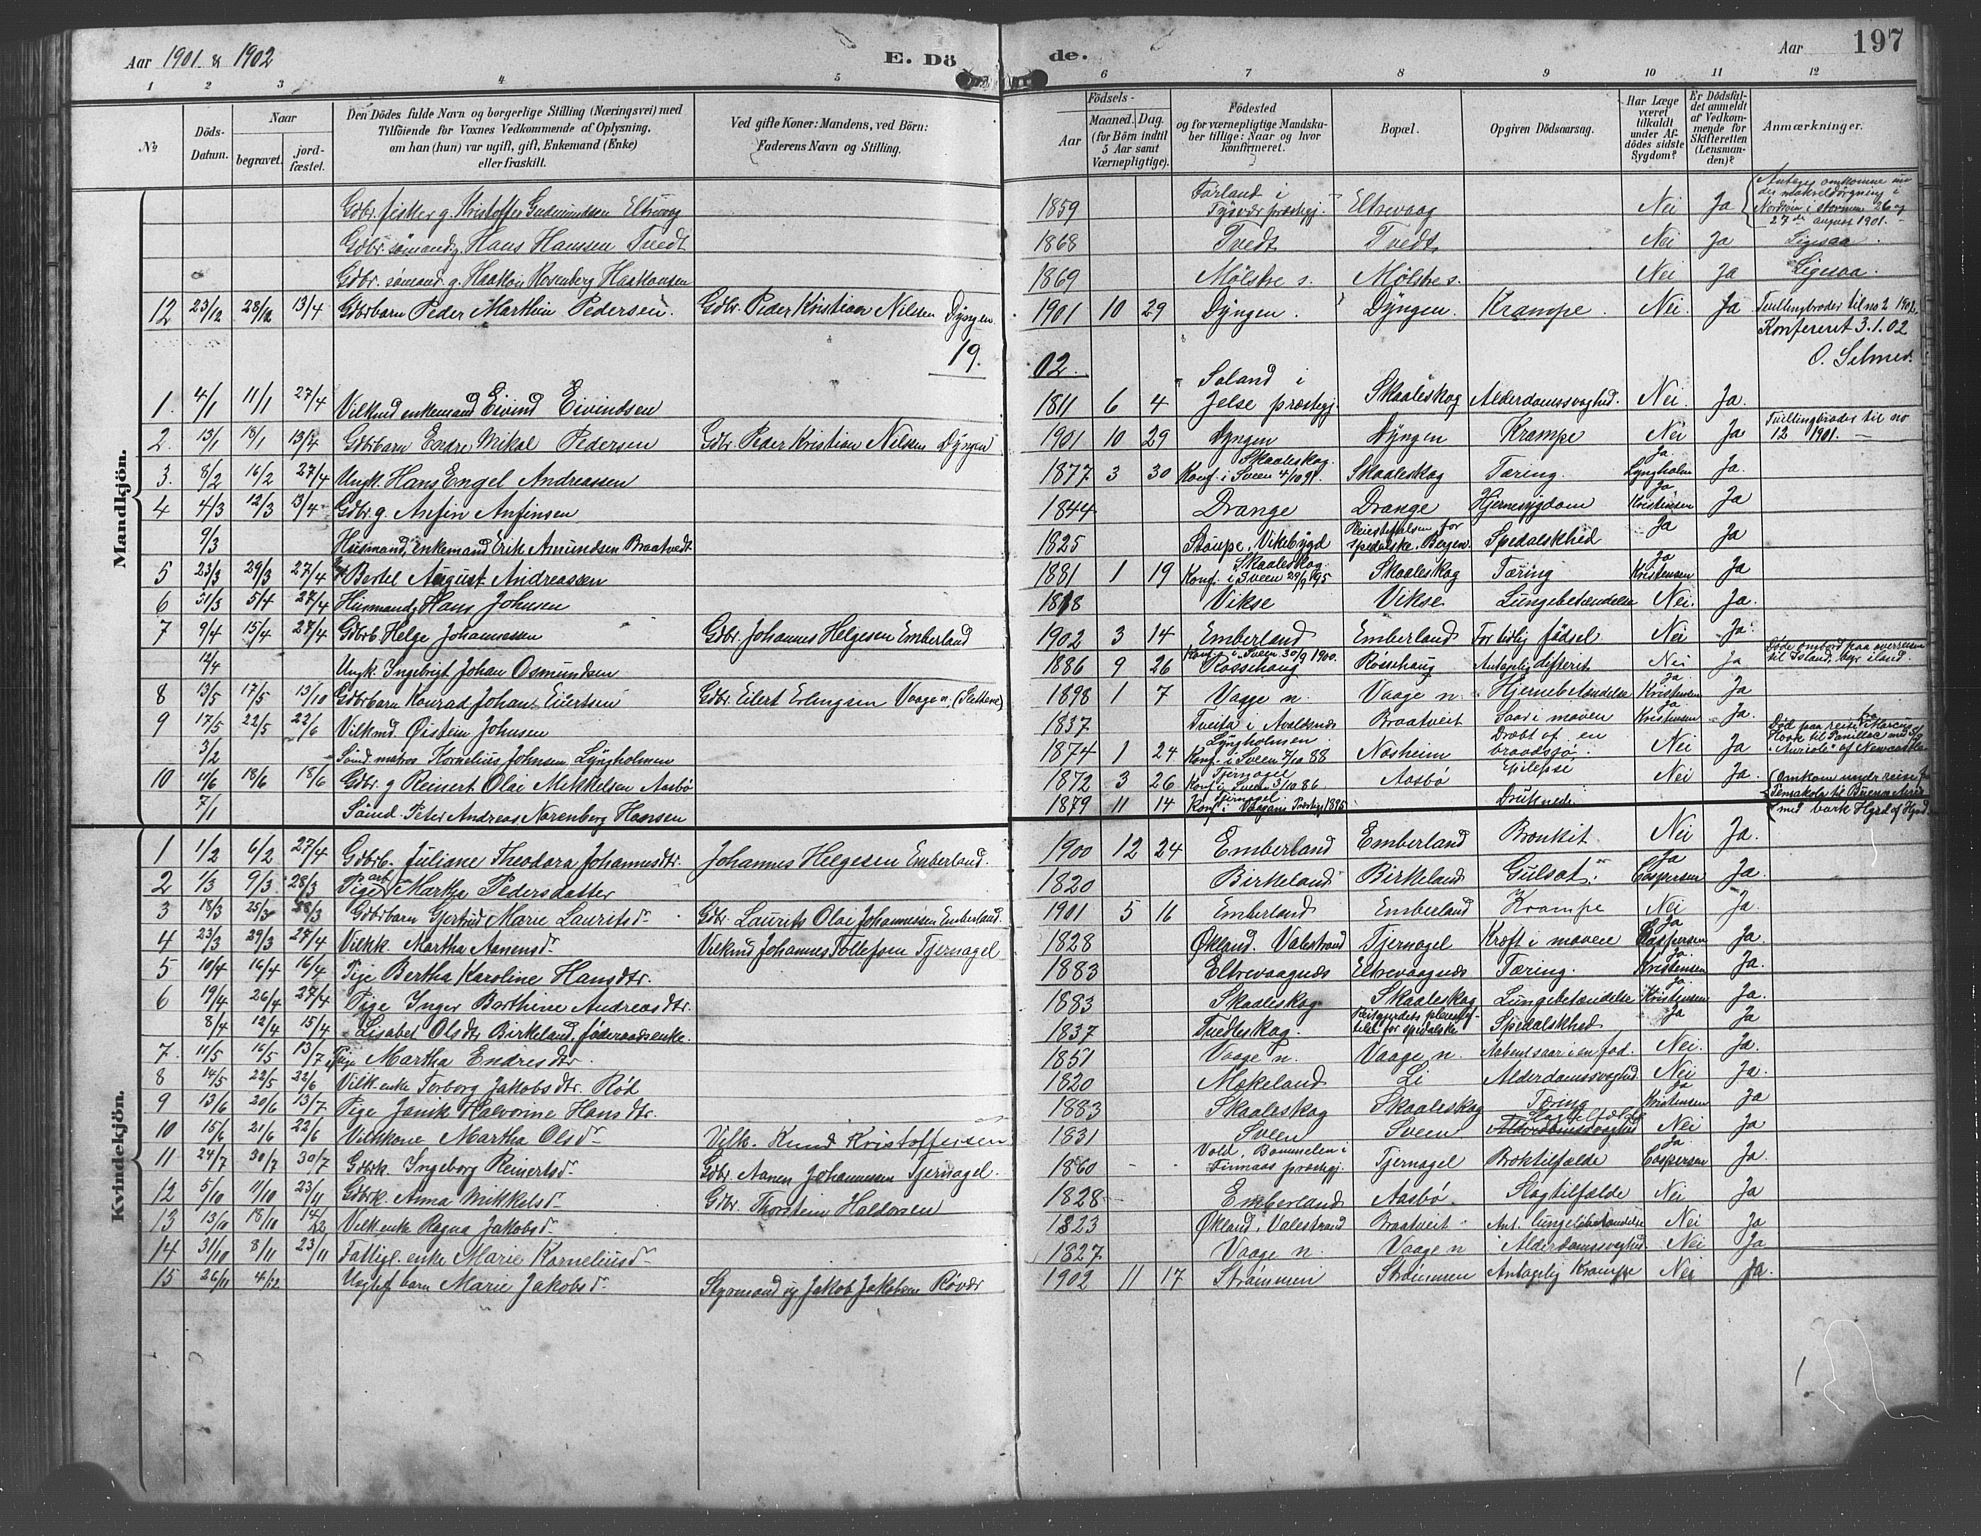 Aar 1901 & 1902 E. Dö de. Aar 197
1 2 3 4 5 6 7 8 9 10 11 12
№ Döds-Datum. Naar begravet. jord-fæstet. Den Dödes fulde Navn og borgerlige Stilling (Næringsvei) med Tilföiende for Voxnes Vedkommende af Oplysning, om han (hun) var ugift, gift, Enkemand (Enke) eller fraskilt. Ved gifte Koner: Mandens, ved Börn: Faderens Navn og Stilling. Födsels- Aar Maaned. Dag. (for Börn indtil 5 Aar samt Værnepligtige). Födested og for værnepligtige Mandska-ber tillige: Naar og hvor konfirmeret. Bopæl. Opgiven Dödsaarsag. Har Læge været tilkaldt under Af-dödes sidste Sygdom? Er Dödsfal-det anmeldt af Vedkom-mende for Skifteretten (Lensman-den)? Anmærkninger.
Mandkjön.
Gdbr. fisker g. Kristoffer Gudmundsen Eltrevaag 1859 Førland i Tysvær præstegj. Eltrevaag Nei Ja Antages omkomne under makreldørgning i Nordsøen i stormen 26 og 27de august 1901.
Gdbr. sømand g. Hans Hansen Tvedt 1868 Tvedt Tvedt Nei Ja Ligesaa.
Gdbr. sømand g. Haakon Rosenberg Haakonsen 1869 Mølstre s. Mølstre s. Nei Ja Ligesaa.
12 23/12 28/12 13/4 Gdbrbarn Peder Marthin Pedersen. Gdbr. Peder Kristian Nilsen Dyngen. 1901 10 29 Dyngen. Dyngen. Krampe. Nei Ja Tvillingbroder til no 2 1902.
Konfereret 3.1.02
19. 02. O. Selmer.
1. 4/1 11/1 27/4 Vilkmd enkemand Eivind Eivindsen 1811 6 4 Søland i Jelse præstegj. Skaaleskog Alderdomssvaghed. Nei. Ja.
2. 13/1 18/1 13/4 Gdbrbarn Endre Mikal Pedersen Gdbr. Peder Kristian Nilsen Dyngen 1901 10 29 Dyngen Dyngen Krampe Nei Ja Tvillingbroder til no 12 1901.
3. 8/2 16/2 27/4 Ungk. Hans Engel Andreassen 1877 3 30 Skaaleskog. Konf. i Sveen 4/10 91. Skaaleskog Tæring. Ja Lyngholm Ja.
4 4/3 12/3 13/4 Gdbr. g. Anfin Anfinsen 1844 Drange Drange Hjernesygdom Ja Kristensen Ja
9/3 Husmand, Enkemand Erik Amundsen Braatvedt 1825 Stoupe, Vikebygd Pleiestiftelsen for Spedalske, Bergen. Spedalskhed Ja Ja
5 23/3 29/3 27/4 Bertel August Andreassen 1881 1 19 Skaaleskog. Konf. i Sveen 29/9 95 Skaaleskog Tæring Ja Kristensen Ja
6 31/3 5/4 27/4 Husmand g. Hans Johnsen 1818 Vikse Vikse Lungebetændelse Nei. Ja.
7 9/4 15/4 27/4 Gdbrb. Helge Johannessen Gdbr. Johannes Helgesen Emberland 1902 3 14 Emberland Emberland For tidlig fødsel Nei Ja.
12/4 Ungk. Ingebrigt Johan Osmundsen 1886 9 26 Konf. i Sveen 30/9 1900. Røssehaug Røssehaug Antagelig difterit Nei Ja Døde ombord paa overreisen til Island, begr. iland.
8 13/5 17/5 13/10 Gdbrbarn Konrad Johan Eilertsen Gdbr. Eilert Erlingsen Vaage n. 1898 1 7 Vaage n. Vaage n. Hjernebetændelse Ja Kristensen Ja
9 17/5 22/5 22/6 Vilkmd. Øistein Johnsen 1837 Tveita i Avaldsnes Braatveit Saar i maven Ja Kristensen Ja.
3/2 Sømd. matros Kornelius Johnsen Lyngholmen 1874 1 24 Lyngholmen Konf. i Sveen 7/10 88 Næsheim Dræbt af en braadsjø. Nei Ja Død paa reise fra til Pauillac med S/S "Auriola" af Newcastle
10 11/6 18/6 18/6 Gdbr. g Reinert Olai Mikkelsen Aasbø 1872 3 26 Tjernagel Konf. i Sveen 3/10 86 Aasbø Epilepsi Nei Ja.
7/1 Sømd. Peter Andreas Norenberg Hansen 1879 11 14 Tjernagel. Konf. i 1895 Druknede. Omkom under reise fra Pensakola til Buenos Aires med bark
Kvindekjön.
1 1/2 6/2 27/4 Gdbrb. Juliane Theodora Johannesdtr. Johannes Helgesen Emberland. 1900 12 24 Emberland Emberland Bronkit Nei Ja.
2 1/3 9/3 28/3 Pige arb. Martha Pedersdatter 1820 Birkeland Birkeland Gulsot. Ja Caspersen Ja.
3 18/3 25/3 28/3 Gdbrbarn Gertrud Marie Lauritsdr. Gdbr. Laurits Olai Johannessen Emberland. 1901 5 16 Emberland Emberland Krampe Nei Ja.
4 23/3 29/3 27/4 Vilkk. Martha Aanensdr. Vilkmd Johannes Tollefsen Tjernagel 1828 Økland. Valestrand Tjernagel Kræft i maven Ja Caspersen Ja.
5 10/4 16/4 16/4 Pige Bertha Karoline Hansdtr. 1883 Eltrevaagnæs Eltrevaagnæs Tæring. Ja Kristensen Ja.
6 19/4 26/4 27/4 Pige Inger Barthine Andreasdtr. 1883 Skaaleskog. Skaaleskog Lungebetændelse Ja Kristensen Ja.
8/4 12/4 15/4 Lisabet Olsdtr Birkeland, føderaadsenke. 1837 Tvedteskog Reitgjerdets pleiestiftelse for spedalske Spedalskhed Ja Ja
7. 11/5 16/5 13/7 Pige Martha Endresdtr. 1851 Vaage n. Vaage n. Aabent saar i en fod. Nei. Ja.
8 14/5 22/5 22/6 Vilk.enke Torborg Jakobsdtr. Rød 1820 Mækeland Li Alderdomssvaghed Nei Ja.
9 13/6 20/6 13/7 Pige Janik Halvorine Hansdtr. 1883 Skaaleskog Skaaleskog Tæring Ja Kristensen Ja
10 15/6 21/6 22/6 Vilkkone Martha Olsdr. Vilk. Knud Kristoffersen 1831 Sveen Sveen Slagtilfælde Alderdomssvaghed Nei Ja
11 24/7 30/7 30/7 Gdbrk. Ingeborg Reinertsdr. Gdbr. Aanen Johannessen Tjernagel. 1860 Vold, Bømmelen i Finnaas præstegj. Tjernagel Ja Caspersen Ja.
12 5/10 11/10 23/11 Gdbrk. Anna Mikkelsdr. Gdbr. Thorstein Haldorsen 1828 Emberland Aasbø. Slagtilfælde Nei Ja
13 13/10 18/10 14/12 Vilk.enke Ragna Jakobsdr. 1823 Økland, Valestrand Braatveit Ant. lungebetændelse Nei Ja
14 31/10 8/11 23/11 Fattigl. enke Marie Korneliusdr. 1827 Vaage n. Vaage n Alderdomssvaghed. Nei Ja
15 26/11 4/12 Uægtef. barn Marie Jakobsdr. Styrmand ug Jakob Jakobsen Røvær 1902 11 17 Strømmen Strømmen Antagelig krampe Nei Ja.